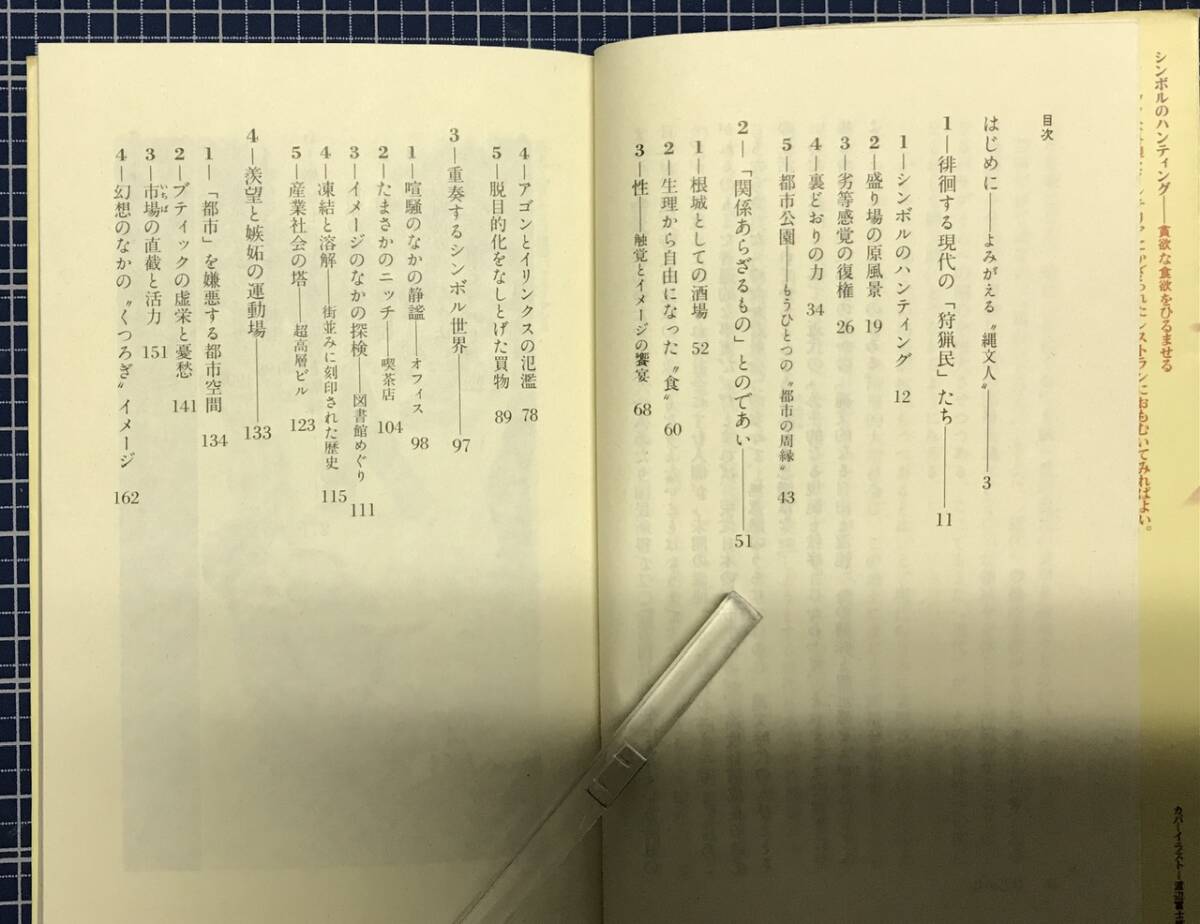 シンボルのハンティング——貪欲な食欲をひるませる
かざられたレストランにおもむいてみればよい。
カバーイラスト＝渡辺冨士
目次
はじめに——よみがえる〝縄文人〟——3
1—徘徊する現代の「狩猟民」たち——11
1—シンボルのハンティング 12
2—盛り場の原風景 19
3—劣等感覚の復権 26
4—裏どおりの力 34
5—都市公園——もうひとつの〝都市の周縁〟 43
2—「関係あらざるもの」とのであい——51
1—根城としての酒場 52
2—生理から自由になった〝食〟 60
3—性——触覚とイメージの饗宴 68
4—アゴンとイリンクスの氾濫 78
5—脱目的化をなしとげた買物 89
3—重奏するシンボル世界——97
1—喧騒のなかの静謐——オフィス 98
2—たまさかのニッチ——喫茶店 104
3—イメージのなかの探検——図書館めぐり 111
4—凍結と溶解——街並みに刻印された歴史 115
5—産業社会の塔——超高層ビル 123
4—羨望と嫉妬の運動場——133
1—「都市」を嫌悪する都市空間 134
2—ブティックの虚栄と憂愁 141
3—市場いちばの直截と活力 151
4—幻想のなかの〝くつろぎ〟イメージ 162